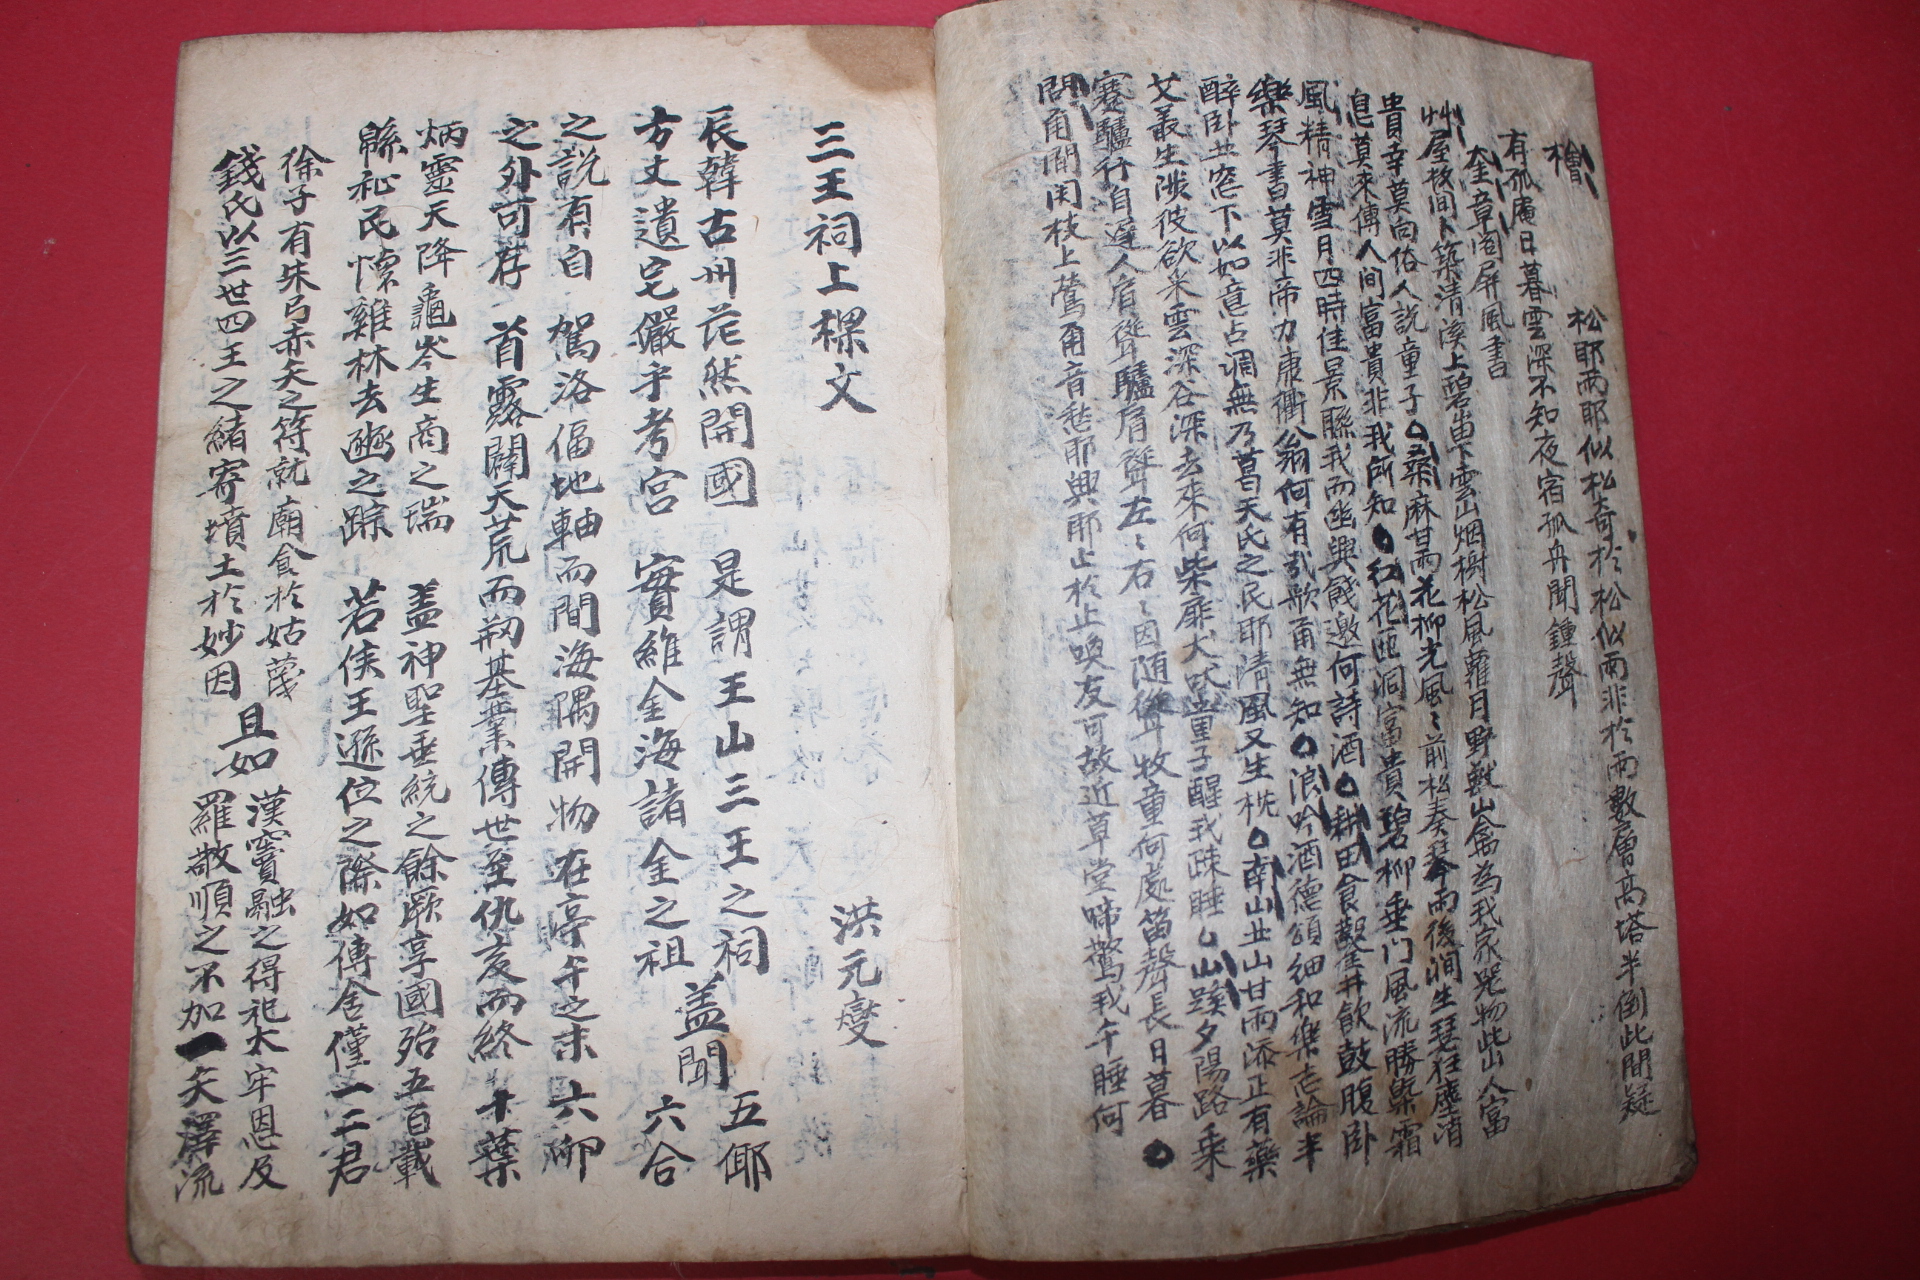 檜 松耶雨耶似松奇於松似雨非於雨數層高塔半倒此間疑
有孤庵日暮雲深不知夜宿孤舟聞鍾聲
奎章閣屏風書
艸屋核間卜築清溪上碧峀下雲山烟樹松風蘿月野獸山禽為我家咒物此山人富
貴幸莫向俗人說童子桑麻甘雨花柳光風〻前松奏琴雨後澗生琴狂塵消
息莫來傳人間富貴非我所知紅花洞富貴碧柳垂門風流勝槩霜
風精神雪月四時佳景聯我而幽興餞邀何詩酒耕田食鑿井飲鼓腹臥
樂琴書莫非帝力康衢翁何有哉歌甬無知浪吟酒德頌細和樂志論半
醉臥北窓下以如意占凋無乃葛天氏之民耶清風又生枕南山北山甘雨添正有藥
艾叢生陟彼欲采雲深谷深去來何柴扉犬吠童子醒我疎睡山蹊夕陽路乘
蹇驢行自遲人眉聳驢肩聳左〻右〻因隨聳牧童何處笛聲長日暮
問甬關関枝上鶯甬音愁耶興耶止於止喚友可故近草堂啼驚我午睡何
三王祠上樑文 洪元燮
辰韓古州茫然開國 是謂王山三王之祠 盖聞 五倻
方丈遺宅儼乎考宮 實維金海諸金之祖 六合
之說有自 駕洛偪地軸而間海隅開物在渟午之末 六卵
之外可存 首露闢天荒而刱基業傳世至仇亥而終 十葉
炳靈天降龜岑生商之瑞 盖神聖垂統之餘厥享國殆五百載
緜祀民懷雞林去豳之蹤 若侯王遜位之際如傳舍僅一二君
徐子有朱弓赤矢之符就廟食於姑蔑 且如 漢竇融之得祀太牢恩及
錢氏以三世四王之緒寄墳土於妙因 羅敬順之不加一矢澤流